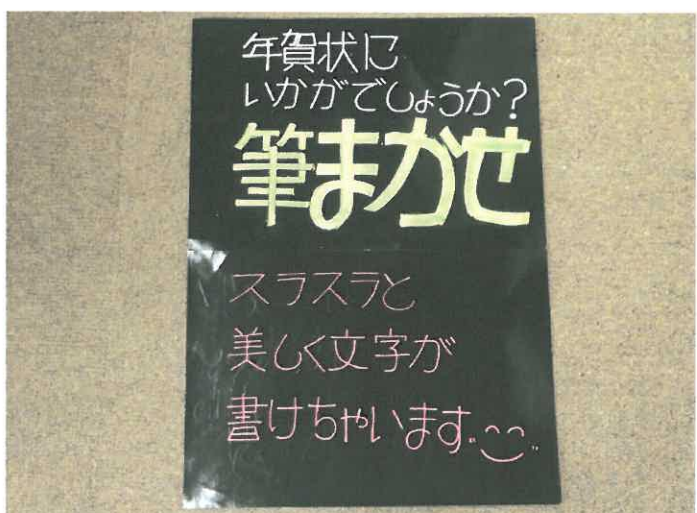 年賀状に
いかがでしょうか?
筆まかせ
スラスラと
美しく文字が
書けちゃいます。